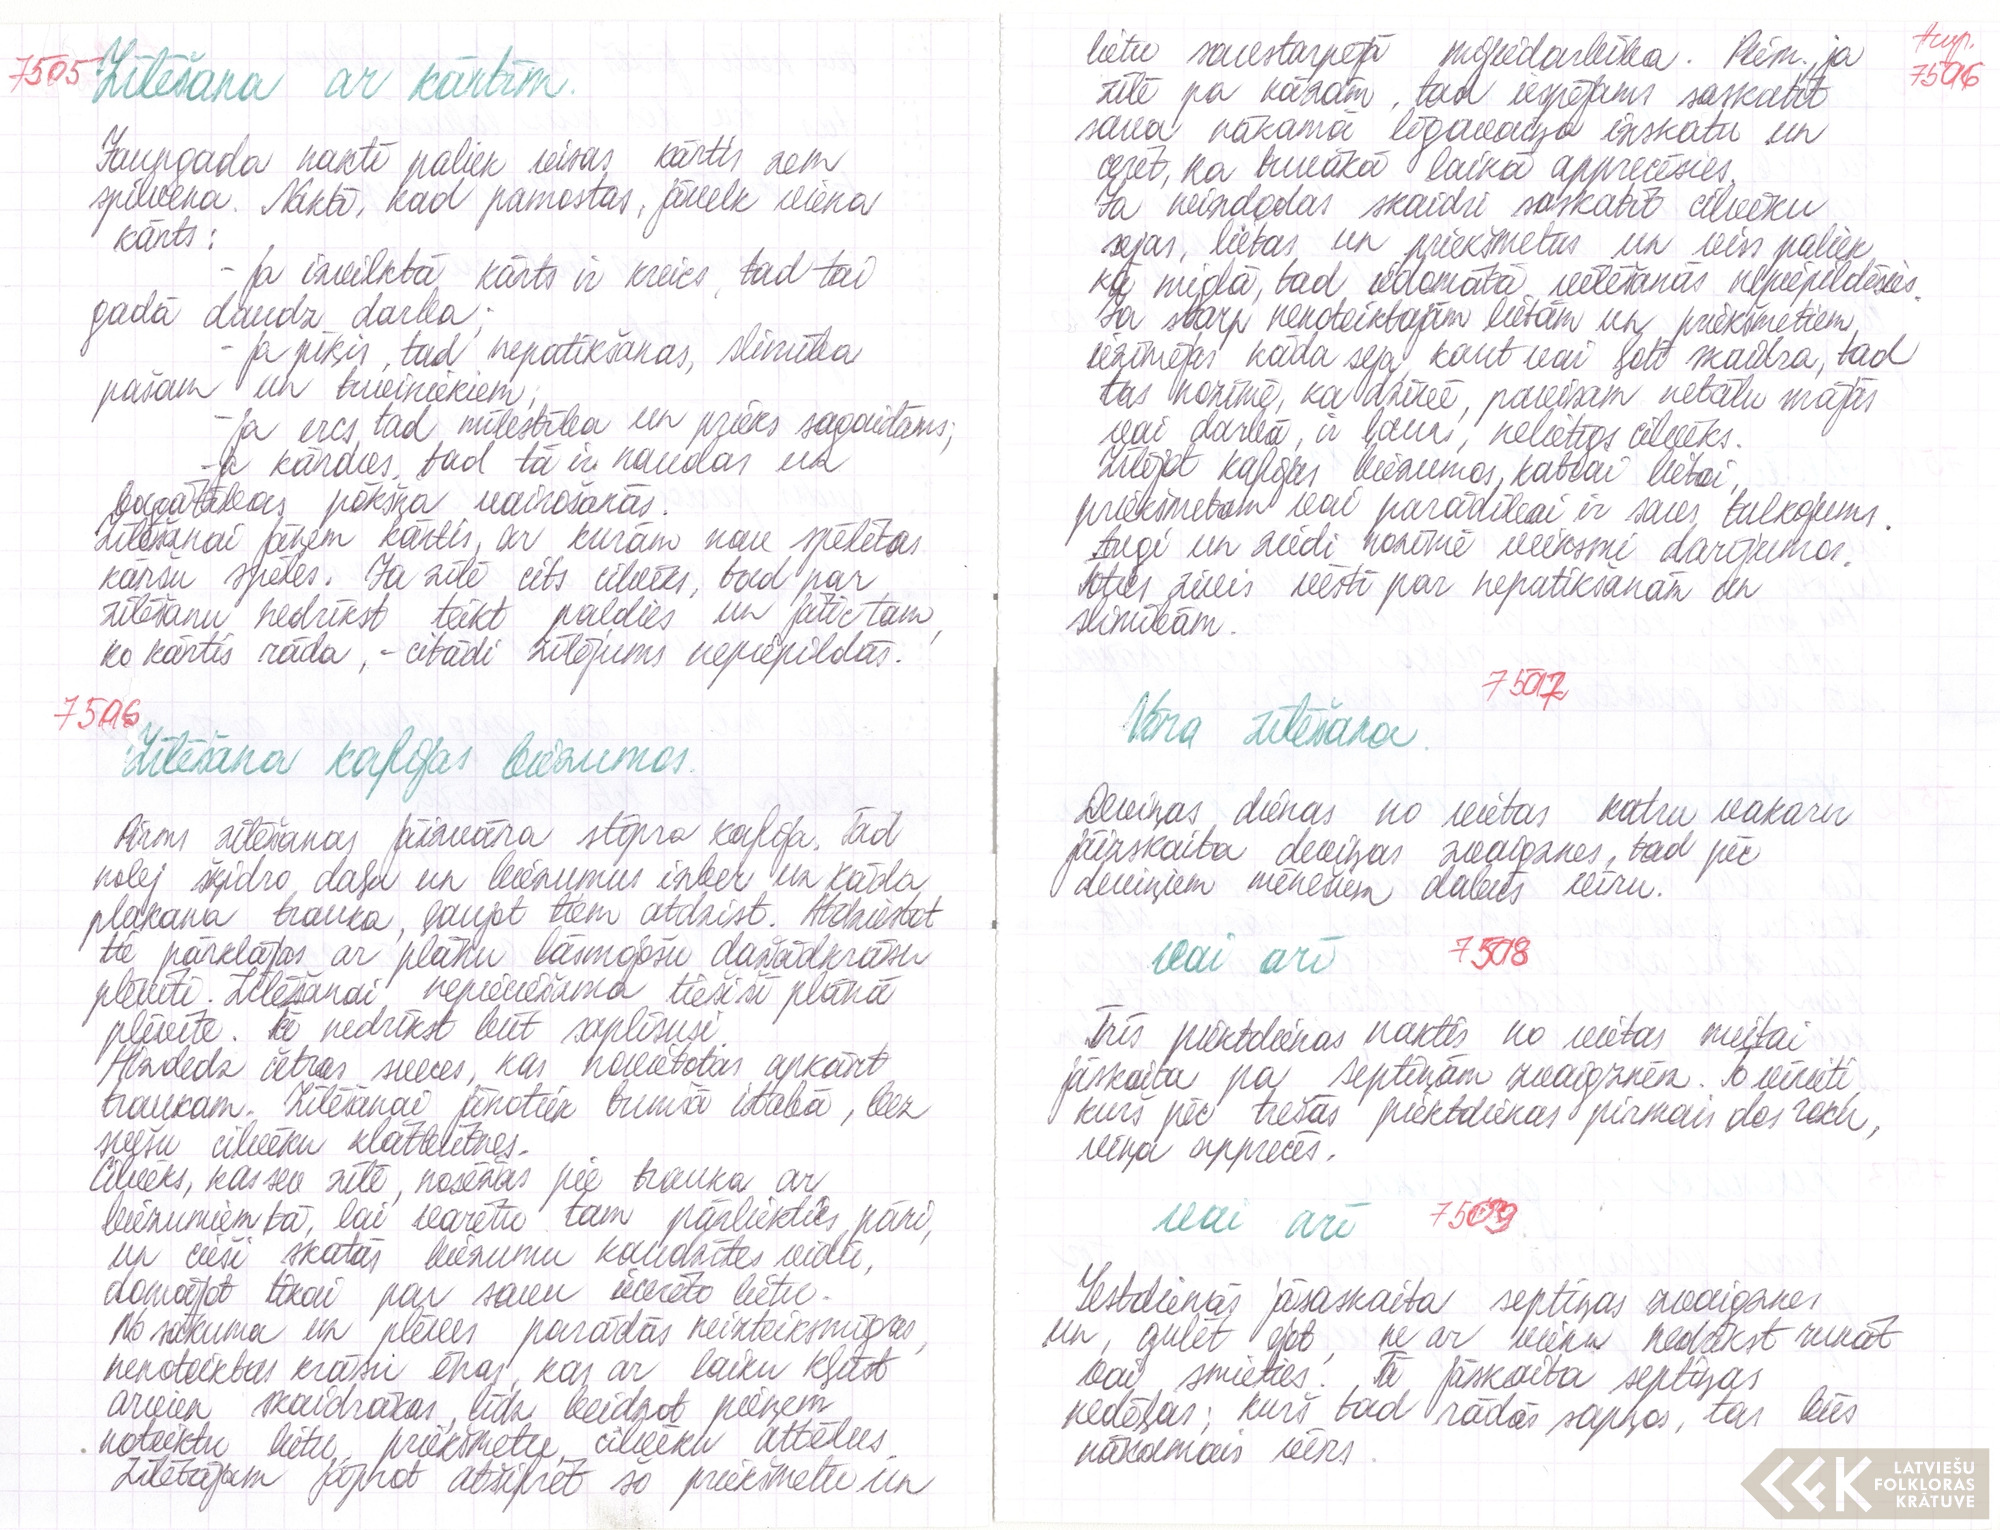 7505 Zīlēšana ar kārtīm.
Jaungada naktī paliek visas kārtis zem
spilvena. Naktī, kad pamostas, jāvelk viena
kārts:
- ja izvilktā kārts ir kreics, tad tai
gadā daudz darba;
- ja piķis, tad nepatikšanas, slimība
pašam un tuviniekiem;
- ja ercs, tad mīlestība un prieks sagaidāms;
- ja kāravs, tad tā ir naudas un
bagātības pēkšņa vairošanās.
Zīlēšanai jāņem kārtis, ar kurām nav spēlētas
kāršu spēles. Ja zīlē cits cilvēks, tad par
zīlēšanu nedrīkst teikt paldies un jātic tam,
ko kārtis rāda, - citādi zīlējums nepiepildās.
7506
Zīlēšana kafijas biezumos.
Pirms zīlēšanas jāizvāra stipra kafija. Tad
nolej šķidro daļu un biezumus izber un kāda
plakana trauka, ļaujot tiem atdzist. Atdziestot
tie pārklājas ar plānu lāsmojošu dažādkrāsu
plēvīti. Zīlēšanai nepieciešama tieši šī plānā
plēvīte. Tā nedrīkst būt saplīsusi.
Aizdedz četras sveces, kas novietotas apkārt
traukam. Zīlēšanai jānotiek tumšā istabā, bez
svešu cilvēku klātbūtnes.
Cilvēks, kas sev zīlē, nosēžas pie trauka ar
biezumiem tā, lai varētu tam pārliekties pāri,
un cieši skatās biezumu kaudzītes vidū,
domājot tikai par savu iecerēto lietu.
No sākuma un plēves parādās neizteiksmīgas,
nenoteiktas krāsu ēnas, kas ar laiku kļūst
arvien skaidrākas, līdz beidzot pieņem
noteiktu lietu, priekšmetu, cilvēku attēlus.
Zīlētājam jāprot atšifrēt šo priekšmetu un
turp.
7506
lietu savstarpējā mijiedarbība. Piem., ja
zīlē pa kāzām, tad iespējams saskatīt
sava nākamā līgavaiņa izskatu un
cerēt, ka tuvākā laikā apprecēsies.
Ja neizdodas skaidri saskatīt cilvēku
sejas, lietas un priekšmetus un viss paliek
kā miglā, tad iedomātā vēlēšanās nepiepildīsies.
Ja starp nenoteiktajām lietām un priekšmetiem
iezīmējas kāda seja, kaut vai ļoti skaidra, tad
tas nozīmē, ka dzīvē, pavisam netālu mājās
vai darbā, ir ļauns, nelietīgs cilvēks.
Zīlējot kafijas biezumos, katrai lietai,
priekšmetam vai parādībai ir savs tulkojums.
Augi un ziedi nozīmē veiksmi darījumos.
Toties zivis vēstī par nepatikšanām un
slimībām.
7507
Vīra zīlēšana.
Deviņas dienas no vietas katru vakaru
jāizskaita deviņas zvaigznes, tad pēc
deviņiem mēnešiem dabūs vīru.
vai arī 7508
Trīs piektdienas naktīs no vietas meitai
jāskaita pa septiņām zvaigznēm. To vīrieti,
kurš pēc trešās piektdienas pirmais dos roku,
viņa apprecēs.
vai arī 7509
Sestdienās jāsaskaita septiņas zvaigznes
un, gulēt ejot, ne ar vienu nedrīkst runāt
vai smieties. Tā jāskaita septiņas
nedēļas; kurš tad rādās sapņos, tas būs
nākamais vīrs.
LATVIEŠU
FOLKLORAS
KRĀTUVE